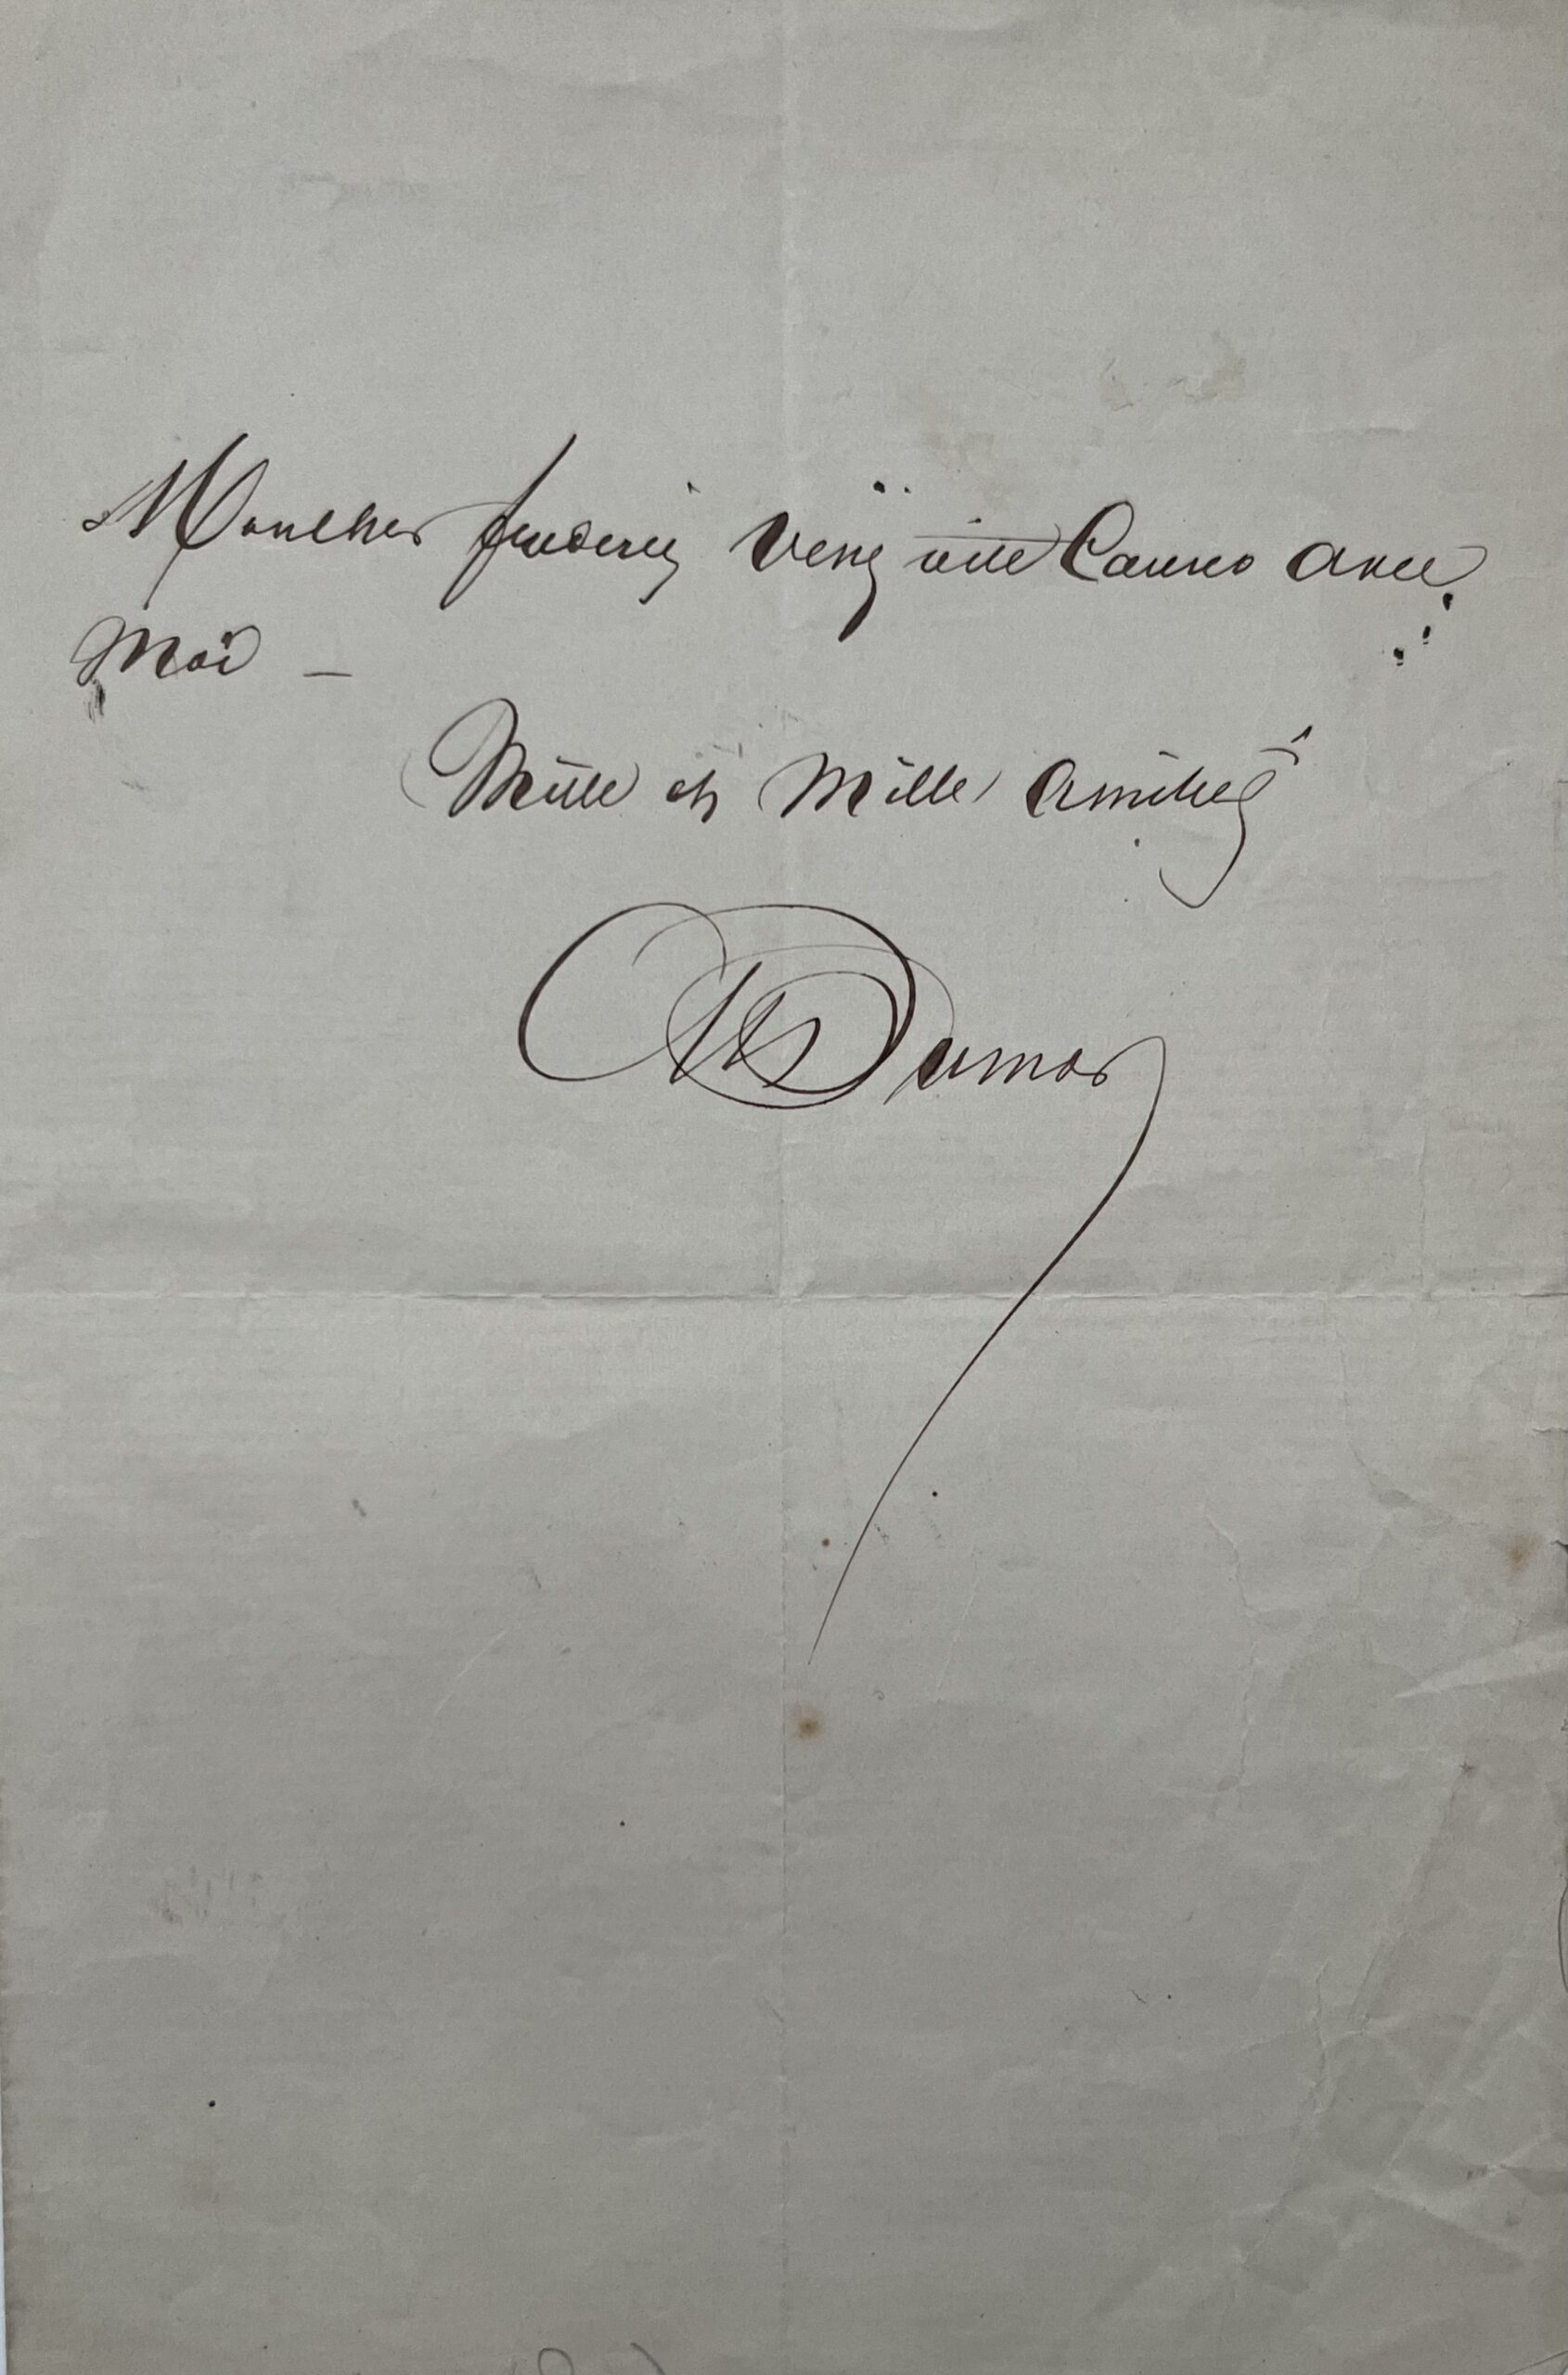 Mon cher Frederic Venez vite Causer avec
Moi —
Mille et Mille amitiés
Alex Dumas